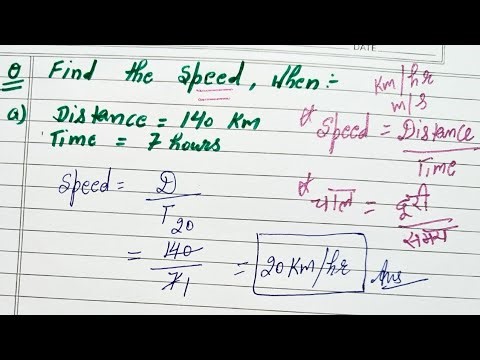 DATE
Q Find the speed, when :-
km/hr
m/s
a) Distance = 140 km
Time = 7 hours
* Speed = Distance
Time
* चाल = दूरी
समय
Speed = D
T
20
= 140
7 1
= 20 Km/hr Ans